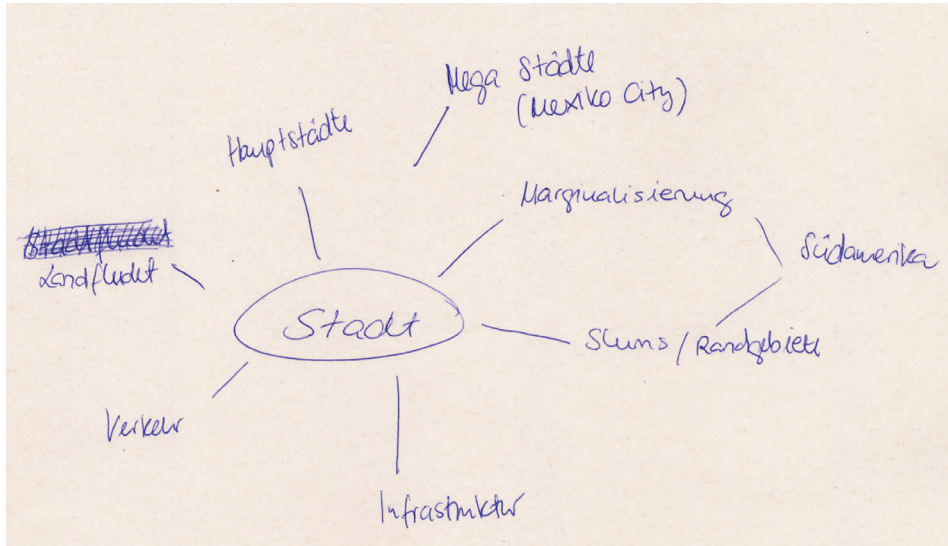 Mega Städte
(Mexiko City)
Hauptstädte
Marginalisierung
Südamerika
Landflucht
Stadt
Slums / Randgebiete
Verkehr
Infrastruktur